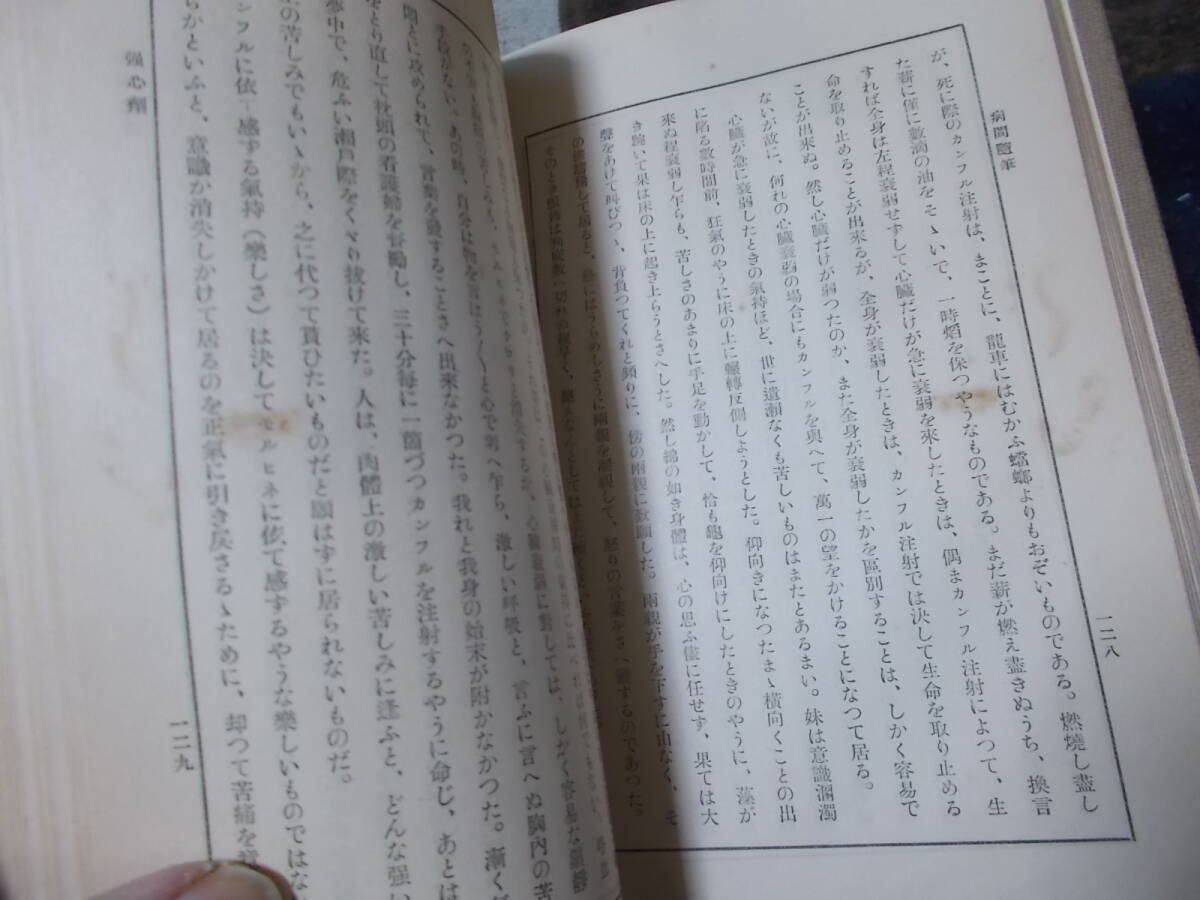 病間隨筆
一二八
が、死に際のカンフル注射は、まことに、龍車にはむかふ蟷螂よりもおぞいものである。燃燒し盡し
た薪に僅に數滴の油をそゝいで、一時焰を保つやうなものである。まだ薪が燃え盡きぬうち、換言
すれば全身は左程衰弱せずして心臓だけが急に衰弱を來したときは、偶まカンフル注射によつて、生
命を取り止めることが出來るが、全身が衰弱したときは、カンフル注射では決して生命を取り止める
ことが出來ぬ。然し心臓だけが弱つたのか、また全身が衰弱したかを區別することは、しかく容易で
ないが故に、何れの心臓衰弱の場合にもカンフルを與へて、萬一の望をかけることになつて居る。
心臓が急に衰弱したときの氣持ほど、世に遣瀬なくも苦しいものはまたとあるまい。妹は意識溷濁
に陥る數時間前、狂氣のやうに床の上に輾轉反側しようとした。仰向きになつたまゝ橫向くことの出
來ぬ程衰弱し乍らも、苦しさのあまりに手足を動かして、恰も龜を仰向けにしたときのやうに、藻が
き踠いて果は床の上に起き上らうとさへした。然し綿の如き身體は、心の思ふ儘に任せず、果ては大
聲をあげて叫びつゝ、背負つてくれと頻りに、傍の兩親に歎願した。兩親が手を下すに由なく、そ
して居ると、終にはうらめしさうに兩親を凝視して、怒りの言葉をさへ發するのであつた。
心臓衰弱に對しては、しかく容易な鎭靜
手段がない。あの時、自分は物を言はうと心で叫へ乍ら、激しい呼吸と、言ふに言へぬ胸內の苦
悶とに攻められて、言葉を發することさへ出來なかつた。我れと我身の始末が附かなかつた。漸く
をとり直して枕頭の看護婦を督勵し、三十分每に一筒づつカンフルを注射するやうに命じ、あとは
夢中で、危ふい瀬戸際をくゞり拔けて來た。人は、肉體上の激しい苦しみに逢ふと、どんな强い
の苦しみでもいゝから、之に代つて貰ひたいものだと願はずに居られないものだ。
ンフルに依て感ずる氣持（樂しさ）は決してモルヒネに依て感ずるやうな樂しいものではな
らかといふと、意識が消失しかけて居るのを正氣に引き戾さるゝために、却つて苦痛を
强心劑
一二九